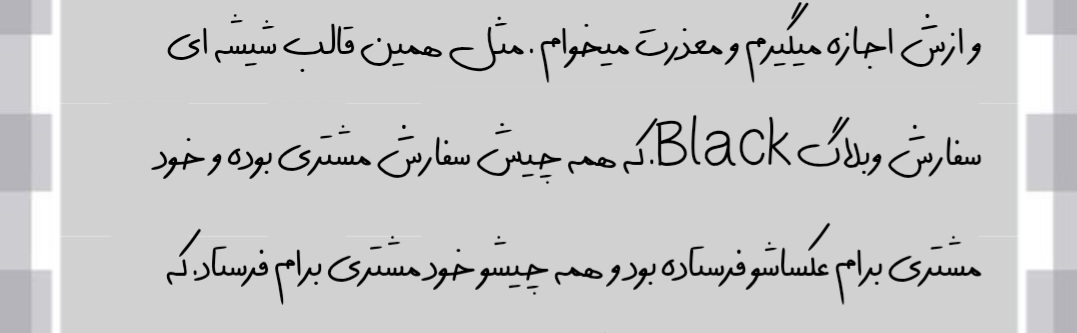 و ازش اجازه میگیرم و معذرت میخوام. مثل همین قالب شیشه ای
سفارش وبلاگ Black.که همه چیش سفارش مشتری بوده و خود
مشتری برام عکساشو فرستاده بود و همه چیشو خود مشتری برام فرستاد.که